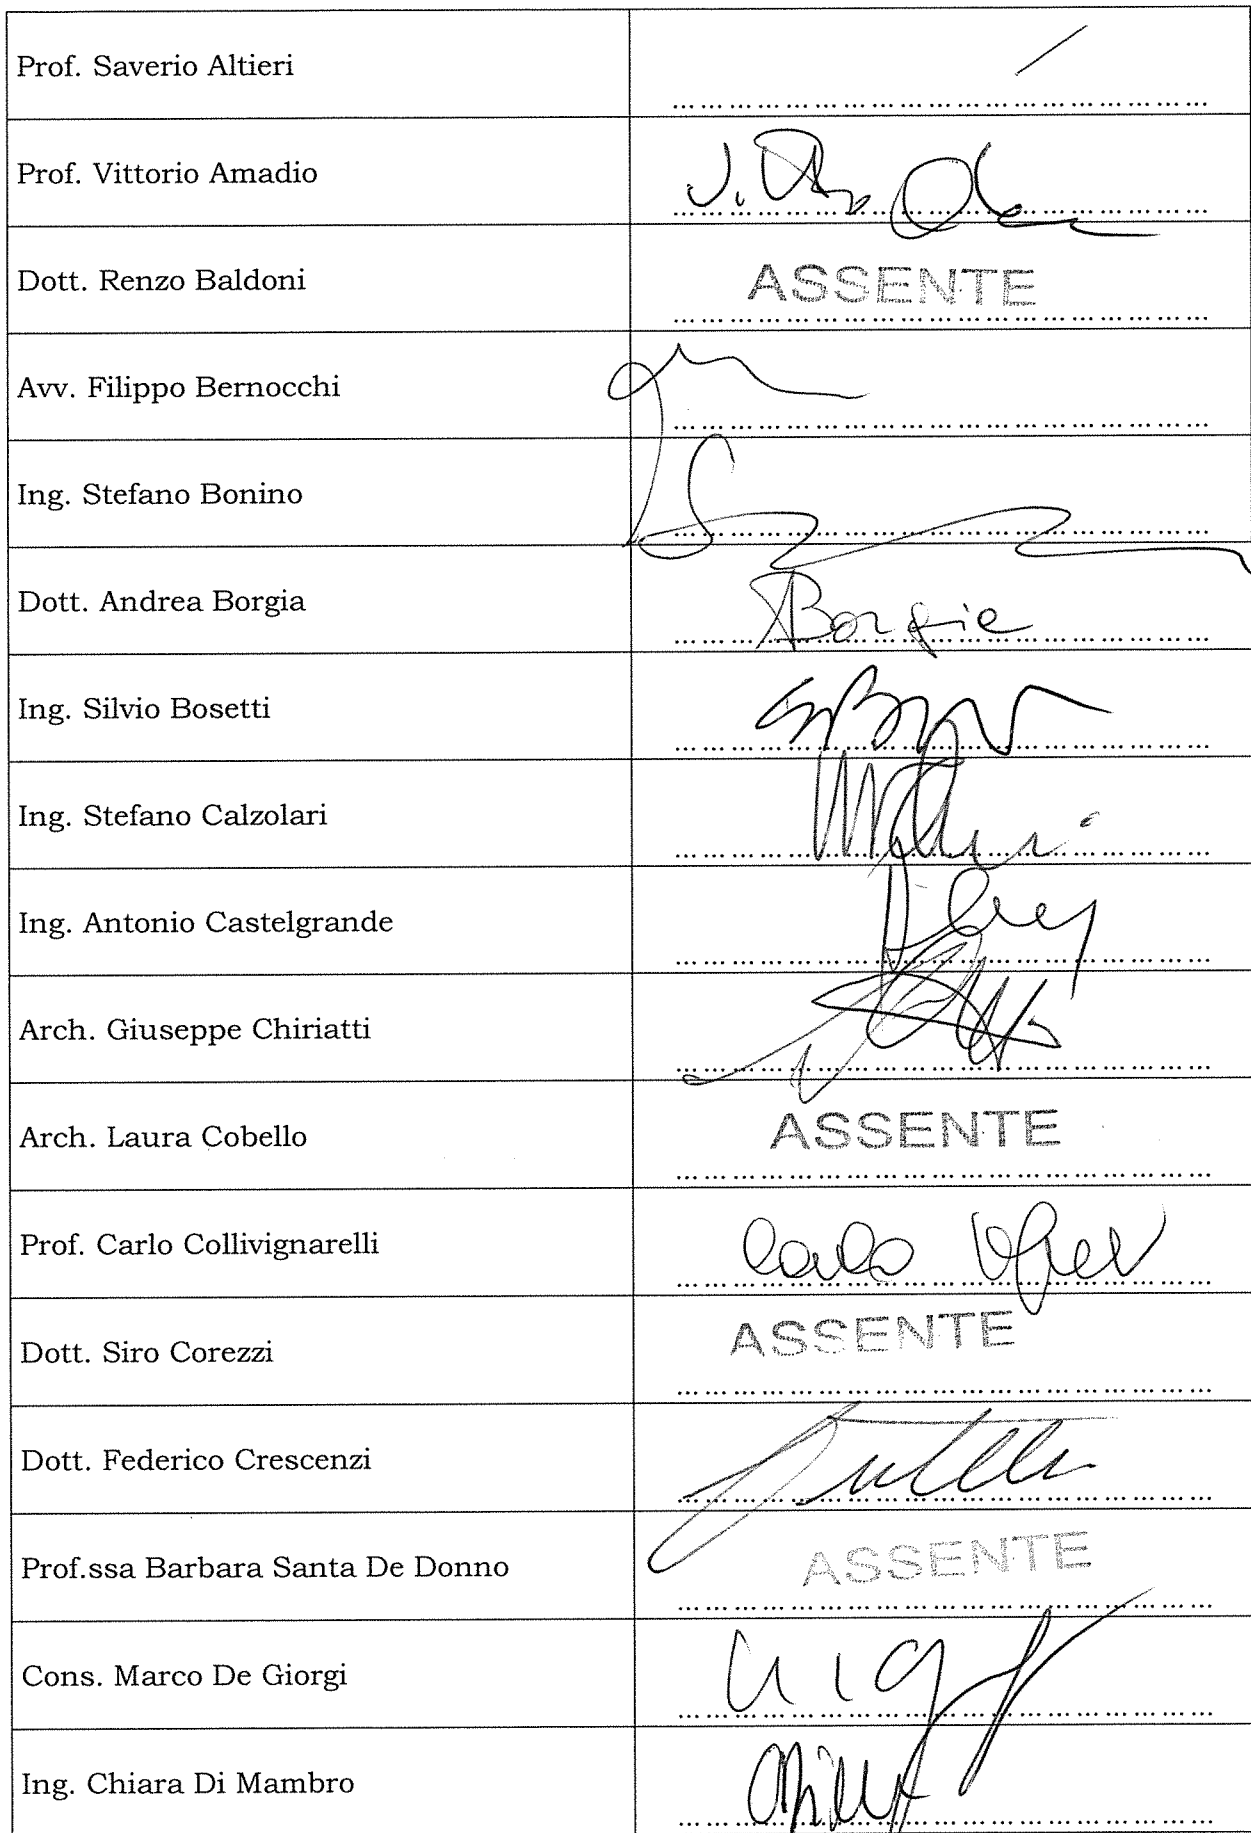 Prof. Saverio Altieri
Prof. Vittorio Amadio
Dott. Renzo Baldoni ASSENTE
Avv. Filippo Bernocchi
Ing. Stefano Bonino
Dott. Andrea Borgia ABorgia
Ing. Silvio Bosetti
Ing. Stefano Calzolari
Ing. Antonio Castelgrande
Arch. Giuseppe Chiriatti
Arch. Laura Cobello ASSENTE
Prof. Carlo Collivignarelli Carlo
Dott. Siro Corezzi ASSENTE
Dott. Federico Crescenzi
Prof.ssa Barbara Santa De Donno ASSENTE
Cons. Marco De Giorgi
Ing. Chiara Di Mambro